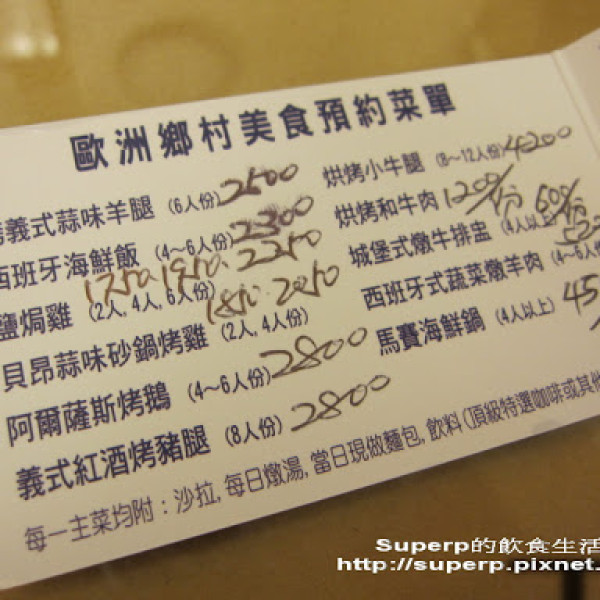 歐洲鄉村美食預約菜單
義式蒜味羊腿 (6人份) 2600
西班牙海鮮飯 (4~6人份) 2300
鹽焗雞 (2人, 4人, 6人份) 1750. 1950. 2250
貝昂蒜味砂鍋烤雞 (2人, 4人份) 1850. 2050
阿爾薩斯烤鵝 (4~6人份) 2800
義式紅酒烤豬腿 (8人份) 2800
烘烤小牛腿 (8~12人份) 4200
烘烤和牛肉 1200/份
城堡式燉牛排盅 (4人以上) 600/份
西班牙式蔬菜燉羊肉 (4~6人份
馬賽海鮮鍋 (4人以上) 45
每一主菜均附：沙拉, 每日燉湯, 當日現做麵包, 飲料 (頂級特選咖啡或其他
Superp的飲食生活
http://superp.pixnet.